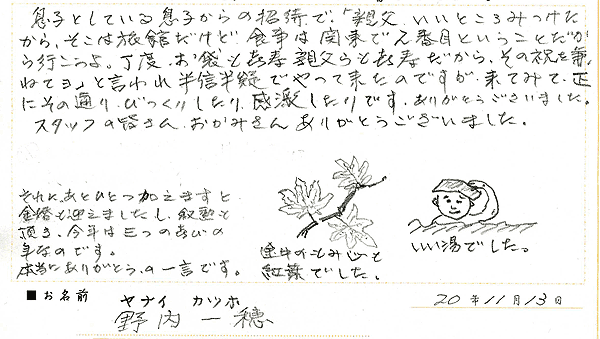 息子としている息子からの招待で、「親父、いいところみつけた
から、そこは旅館だけど食事は関東で2番目ということだか
ら行こうよ。丁度、お袋も喜寿、親父も喜寿だから、その祝を兼
ねてヨ」と言われ半信半疑でやって来たのですが、来てみて、正
にその通り、びっくりしたり、感激したりです。ありがとうございました。
スタッフの皆さん、おかみさん、ありがとうございました。
それに、あとひとつ加えますと
金婚も迎えましたし、叙勲も
頂き、今年は三つの喜びの
年なのです。
本当にありがとう、の一言です。
途中のもみじも
紅葉でした。
いい湯でした。
■お名前
ヤナイ カツホ
野内 一穂
20年11月13日